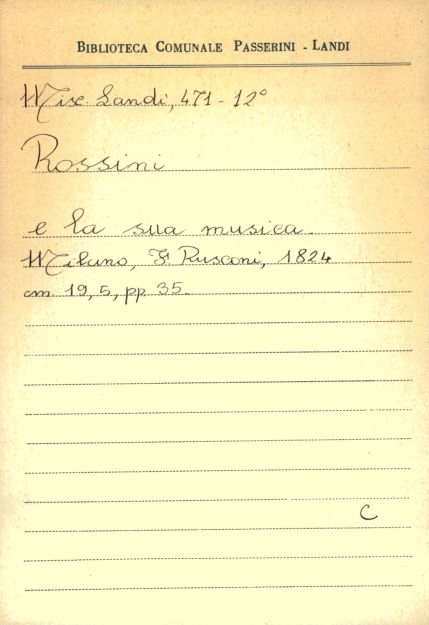 BIBLIOTECA COMUNALE PASSERINI - LANDI
Misc Landi, 471 - 12°
Rossini
e la sua musica.
Milano, F Rusconi, 1824
cm. 19,5, pp. 35.
C